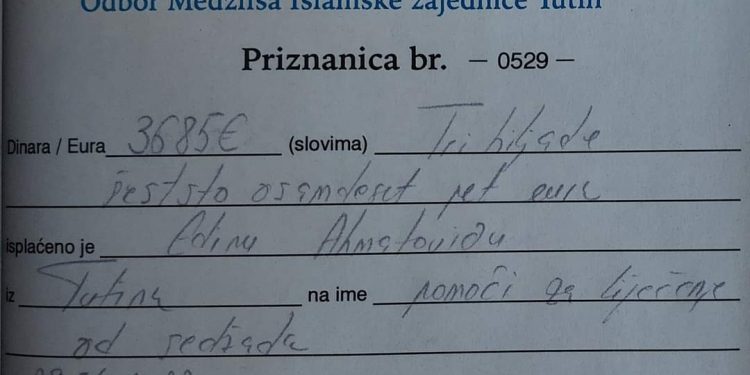 Odbor Medžlisa Islamske zajednice Tutin
Priznanica br. – 0529 –
Dinara / Eura 3685€ (slovima) Tri hiljade
šeststo osamdeset pet eura
isplaćeno je Edinu Ahmatoviću
iz Tutina na ime pomoći za liječenje
od sedžada